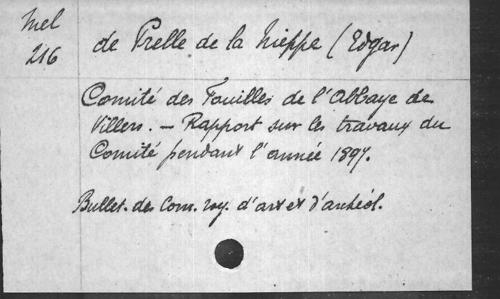 Mel
216
de Prelle de la Nieppe (Edgar)
Comité des Fouilles de l'Abbaye de
Villers. — Rapport sur les travaux du
Comité pendant l'année 1897.
Bullet. des Com. roy. d'art et d'archéol.